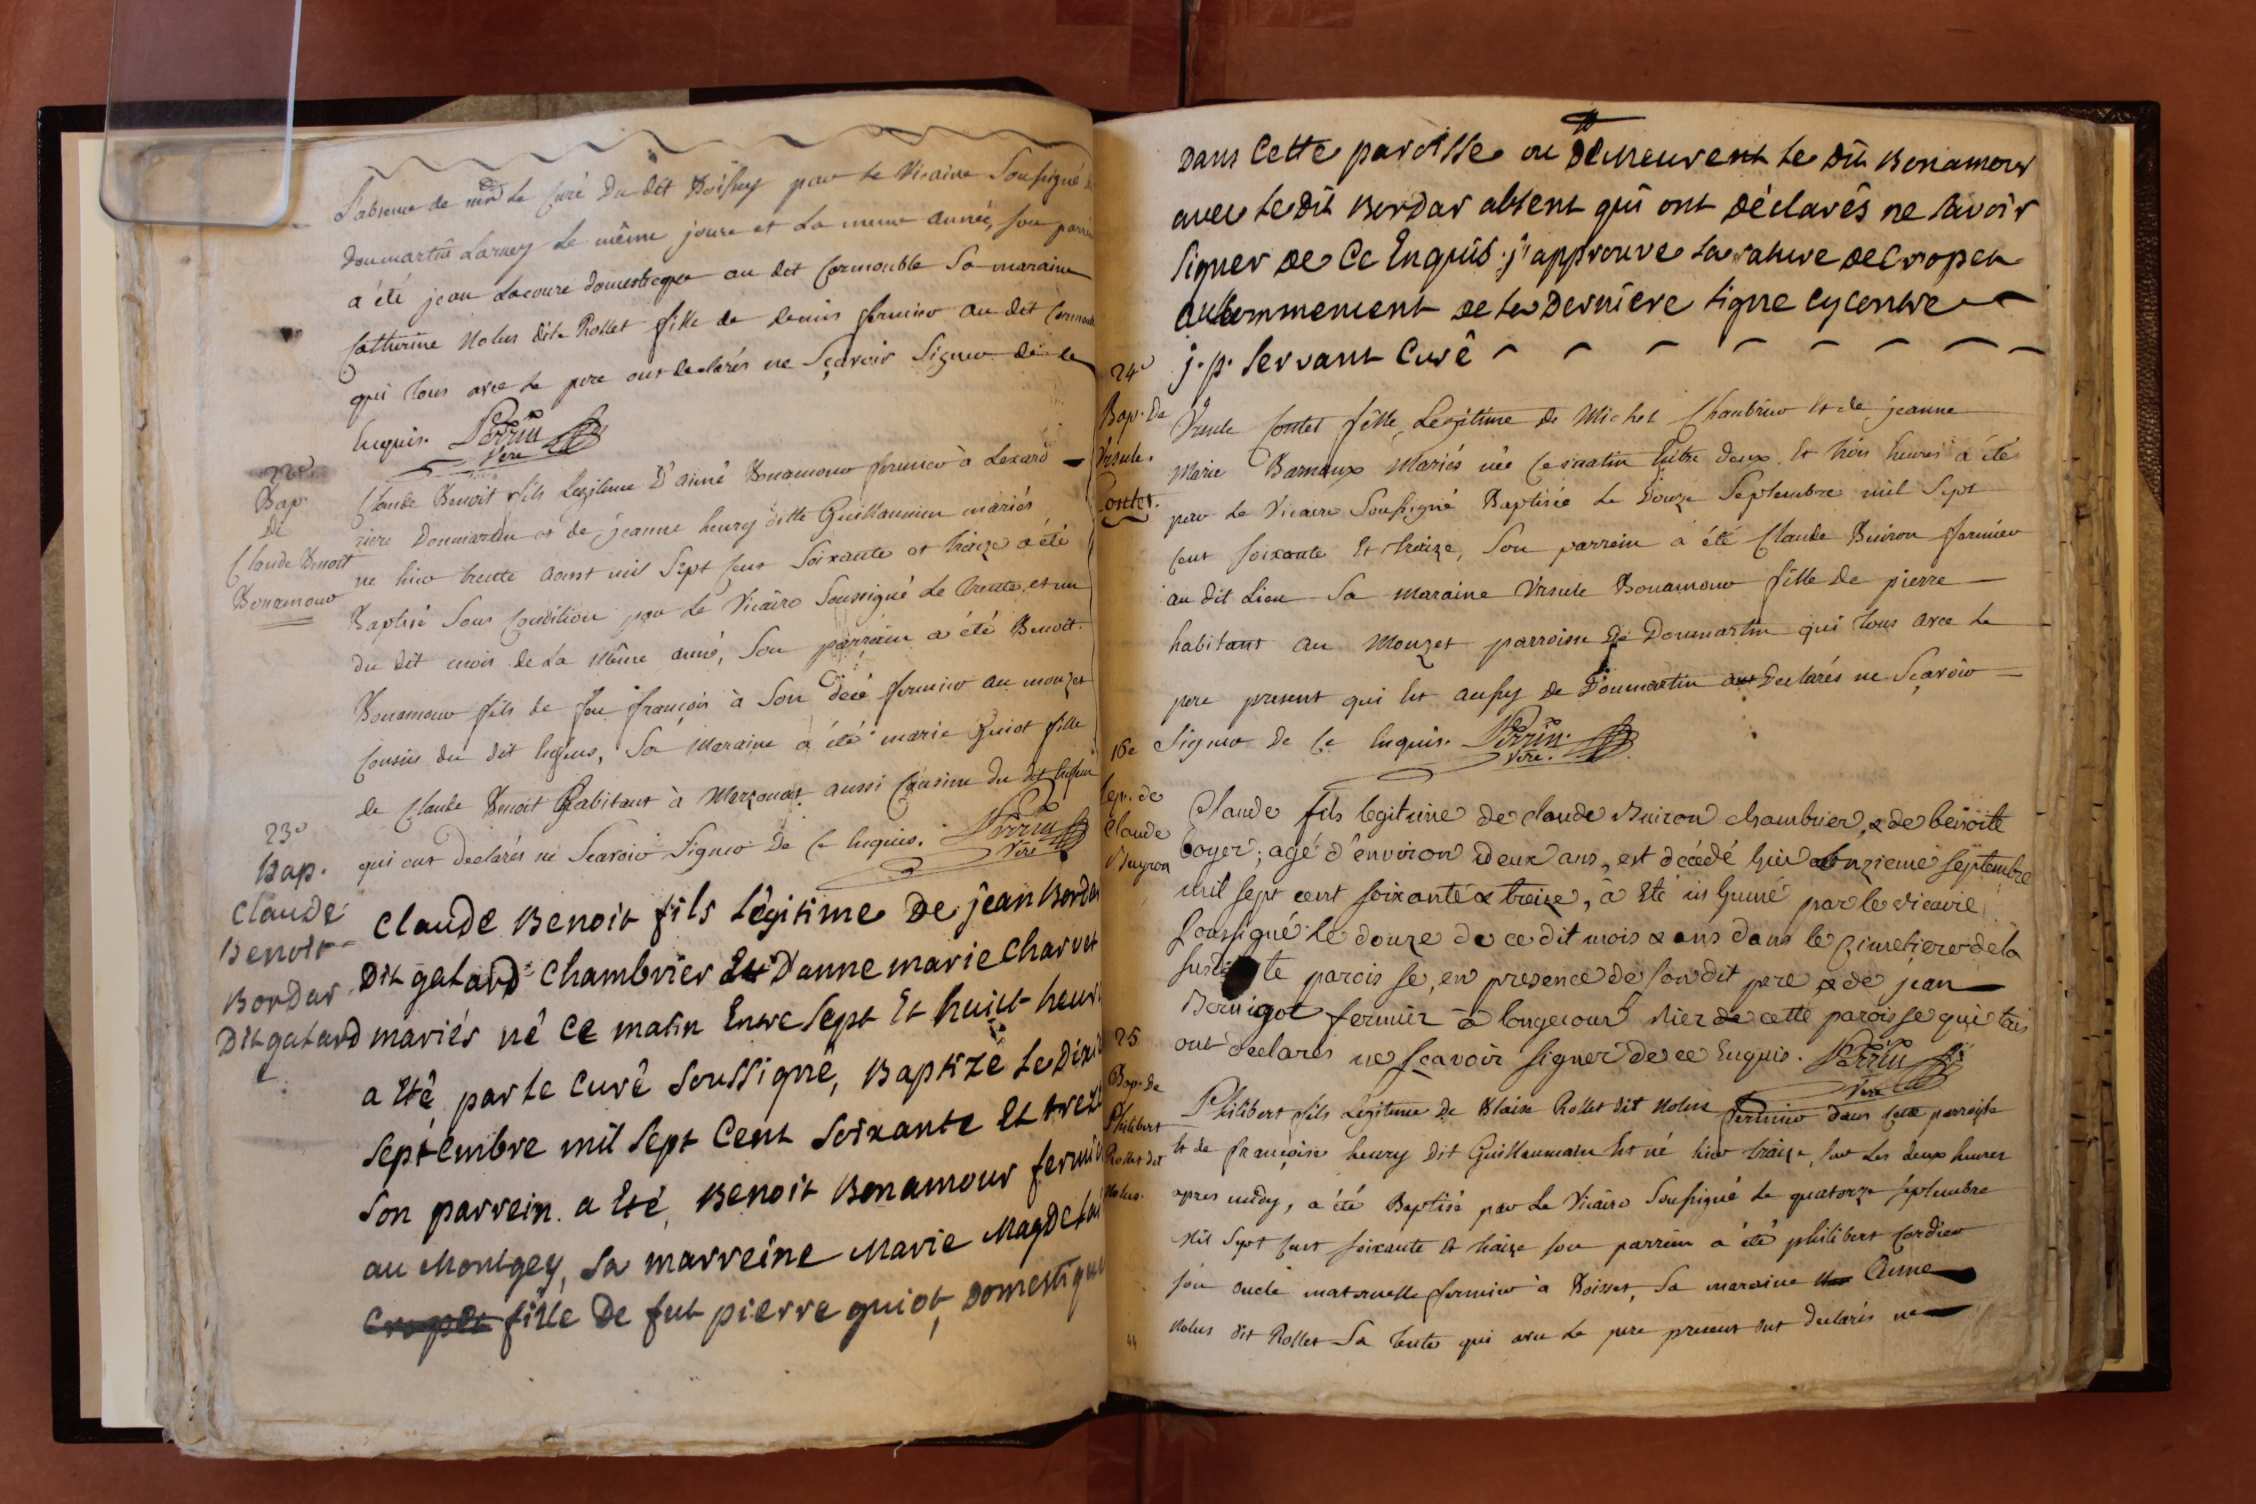 L'absence de mr le Curé du dit Boissey par le Vicaire Soussigné
Donmartin Larnay le même jour et la meme année, son parrain
a été jean Lacoure domestique au dit Cormouble Sa maraine
Catherine Nolus dite Rollet fille de Denis fermier au dit
qui tous avec le pere ont declarés ne Sçavoir Signer de ce
Enquis. Perrin
Vire
22e
Bap
de
Claude Benoit
Bonamour
Claude Benoit fils legitime d'aimé Bonamour fermier à
riere Donmartin et de jeanne henry ditte Guillaumin mariés
né hier trente aoust mil Sept Cent Soixante et traize a été
Baptisé Sous Condition par le Vicaire Soussigné le trente et un
du dit mois de La même anné, Son parrain a été Benoit
Bonamour fils de feu françois à Son décé fermier au mouget
Cousin du dit Sa Maraine a été marie Guiot fille
de Claude Benoit Habitant à aussi Cousine du dit
qui ont declarés ne Scavoir Signer De Ce Enquis. Perrin
Vire
23e
Bap.
Claude
Benoit
Bordar
Dit gatard
Claude Benoit fils Légitime De jêan Bordar
Dit gatard Chambrier Et D'anne marie Charvet
mariés né Ce matin Entre Sept Et huict heures
a Eté par le Curé Soussigné, Baptizé le Dixie
Septembre mil Sept Cent Soixante Et treize
Son parrein a Eté, Benoit Bonamour fermier
au Montgey, Sa marreine Marie Magdelai
Cropet fille De fut pierre guiot, Domestique
Dans Cette paroisse ou Demeurent le Dit Bonamour
avec le dit Bordar absent qui ont Déclarés ne Savoir
Signer De Ce Enquis. j'approuve la rature De Cropet
au Commencment De la Derniere ligne Cy Contre
j. p. Servant Curé
24e
Bap. de
Ursule
Contet.
Ursule Contet fille Legitime de Michel Chambrier Et de jeanne
Marie Barnaux Mariés née Ce matin Entre deux Et trois heures a été
par le Vicaire Soussigné Baptisée Le Douze Septembre mil Sept
Cent soixante Et traize, Son parrein a été Claude Buiron fermier
au dit Lieu Sa Maraine Ursule Bonamour fille de pierre
habitant au Mouget parroisse de Donmartin qui tous avec le
pere present qui Est aussy de Donmartin ont Declarés ne Sçavoir
Signer De Ce Enquis. Perrin
Vire.
16e
Sep. de
Claude
Buyron
Claude fils legitime de claude Buiron chambrier, & de benoite
boyer; agé d'environ deux ans, est décédé hier onzieme septembre
mil sept cent soixante & treize, a Eté inhumé par le vicaire
Soussigné le douze de ce dit mois & ans dans le Cimetiere de la
susdite paroisse, en presence de son dit pere & de jean
Bornigot fermier à longecour rier de cette paroisse qui tous
ont declarés ne sçavoir signer de ce Enquis. Perrin
Vire
25
Bap. de
Philibert
Rollet dit
Nolus.
Philibert fils Legitime De Blaise Rollet dit Nolus fermier dans Cette parroisse
Et de françoise henry Dit Guillaumin Est né hier traize, sur les deux heures
apres midy, a été Baptisé par Le Vicaire Soussigné Le quatorze septembre
Mil Sept Cent soixante Et traize son parrein a été philibert Cordier
son oncle maternelle fermier à Boisset, Sa maraine Anne
Nolus dit Rollet Sa Tante qui avec Le pere present ont declarés ne